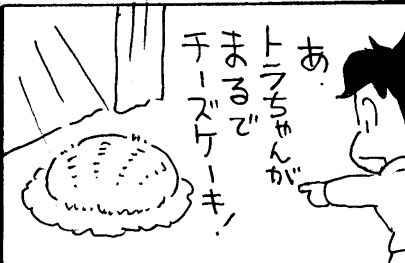 あ.
トラちゃんが
まるで
チーズケーキ!